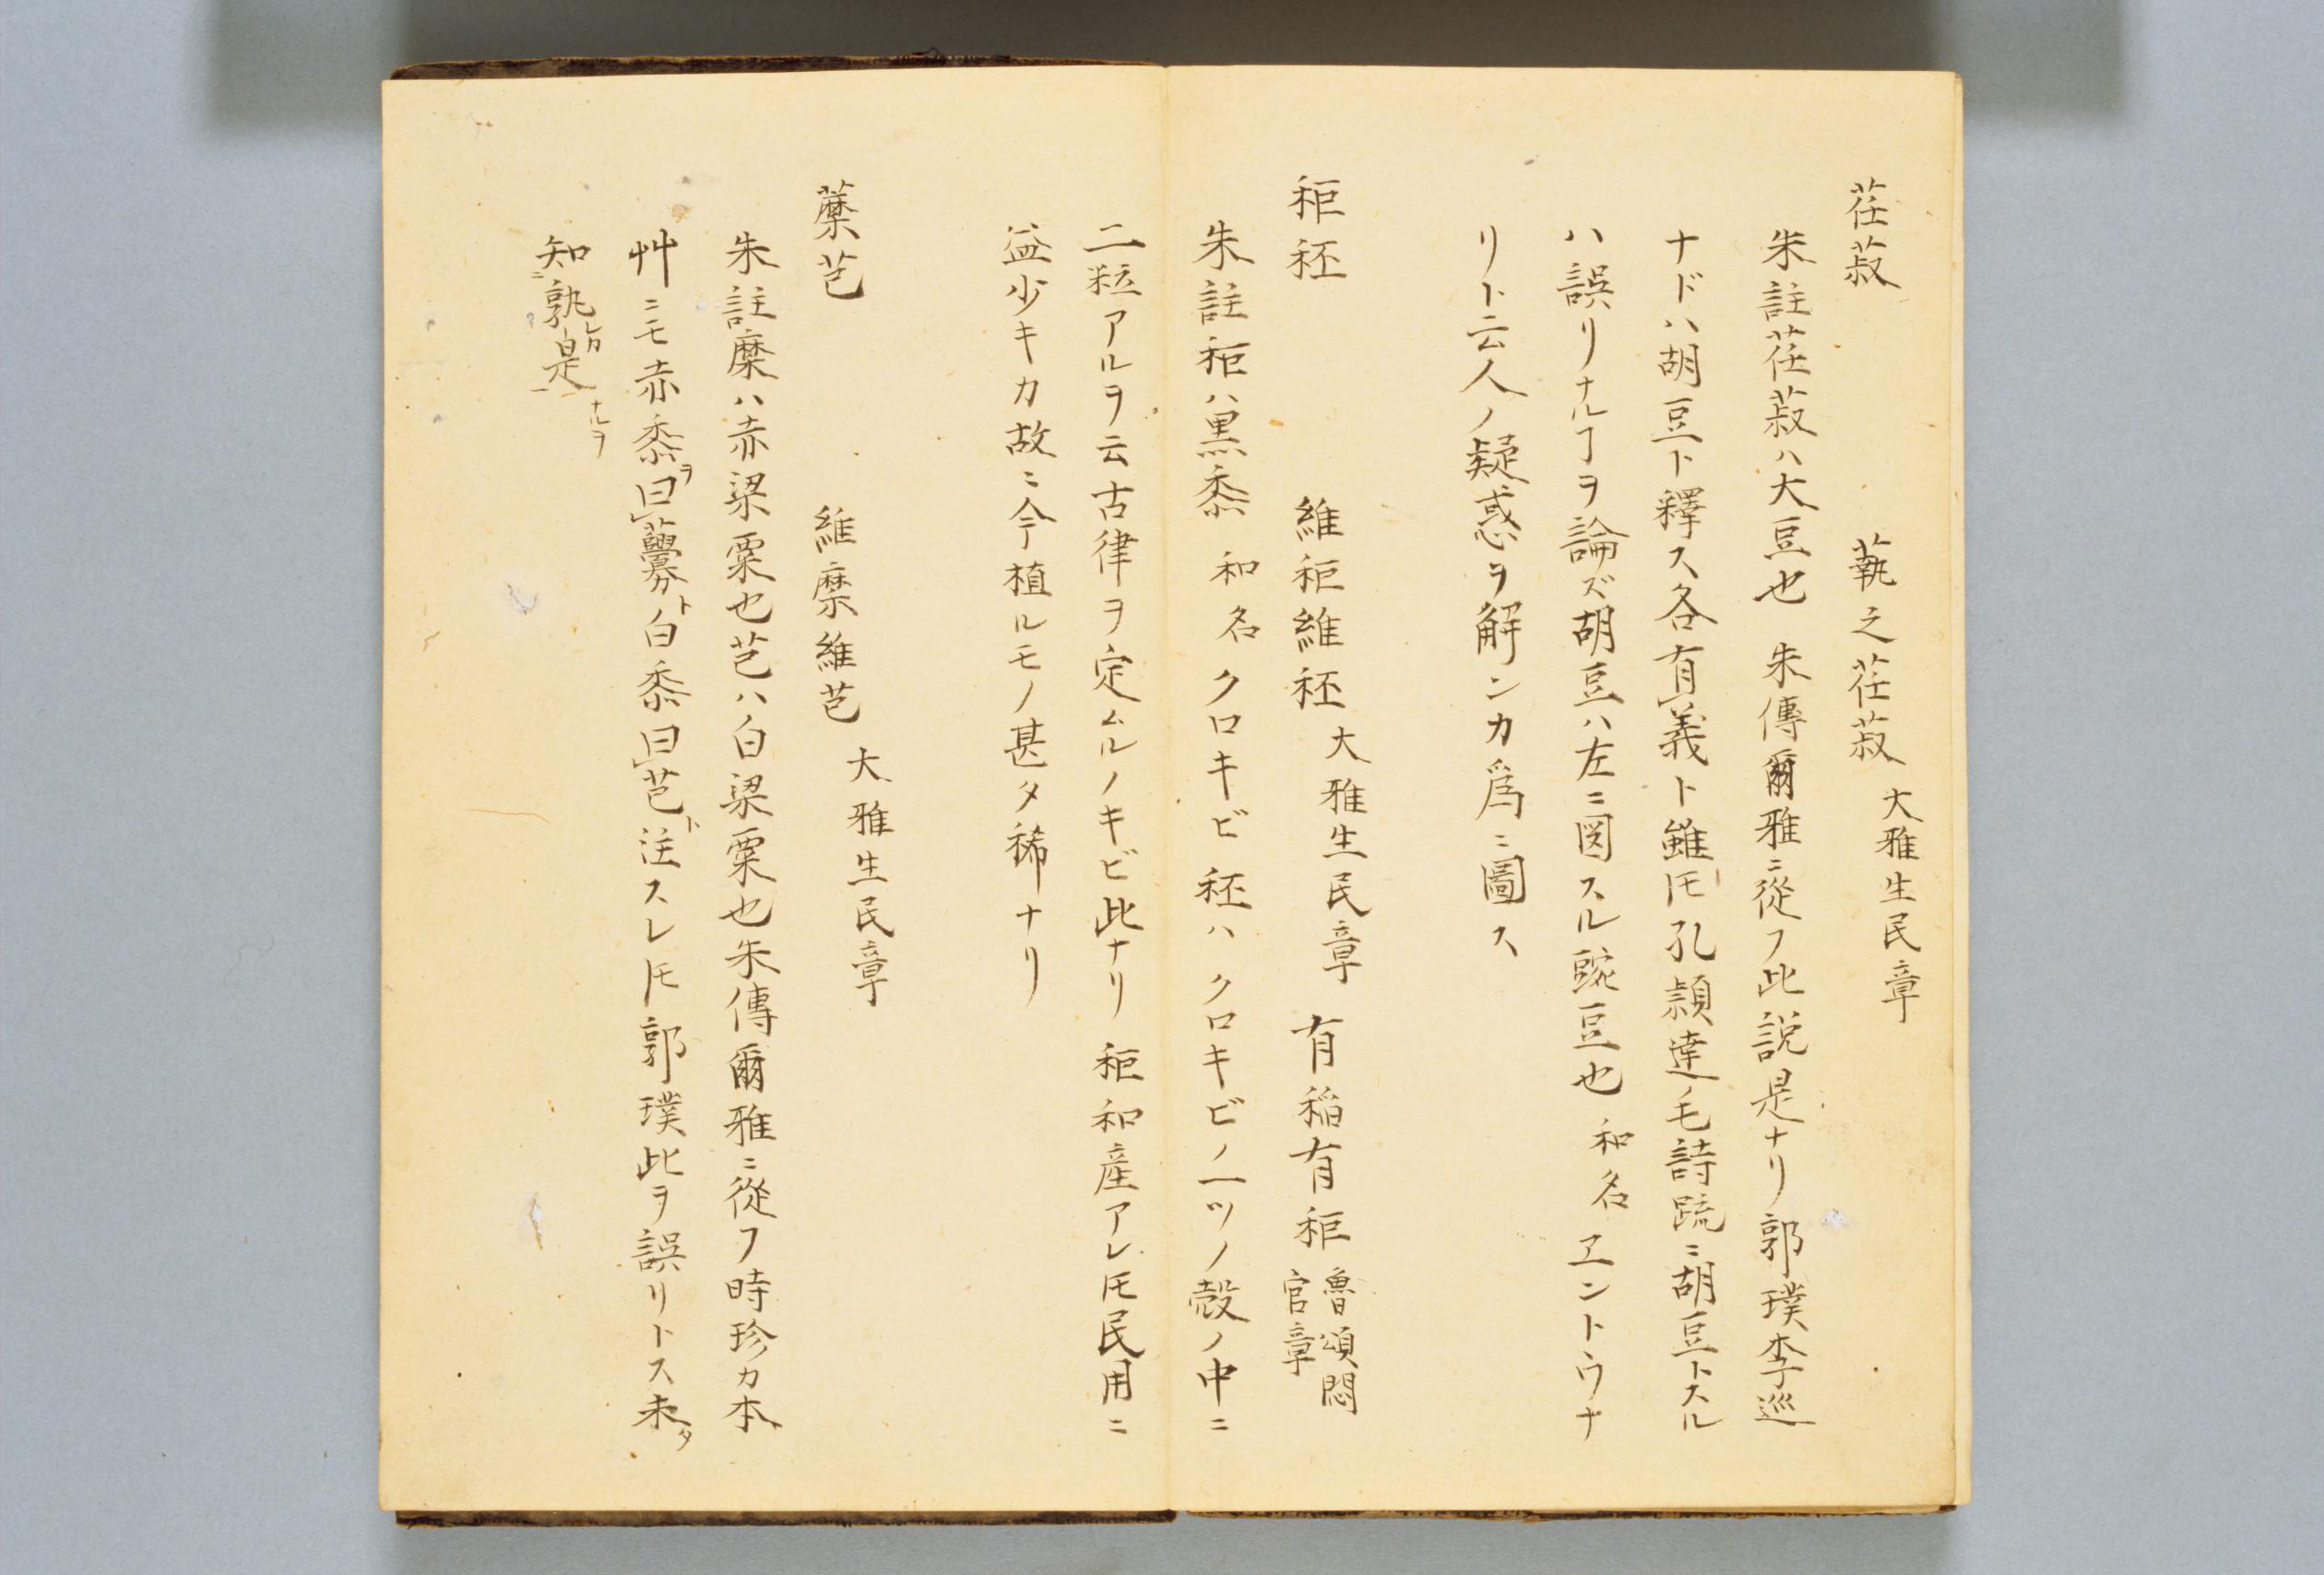 荏菽　蓺之荏菽 大雅生民章
朱註荏菽ハ大豆也　朱傳爾雅ニ從フ此説是ナリ郭璞李巡
ナドハ胡豆ト釋ス各有義ト雖𪜈孔頴達ノ毛詩䟽ニ胡豆トスル
ハ誤リナルヿヲ論ズ胡豆ハ左ニ図スル豌豆也 和名ヱントウナ
リト云人ノ疑惑ヲ解ンカ爲ニ圖ス
秬秠　維秬維秠 大雅生民章　有稲有秬 魯頌閟官章
朱註秬ハ黒黍 和名クロキビ 秠ハクロキビノ一ツノ殻ノ中ニ
二粒アルヲ云古律ヲ定ムルノキビ此ナリ　秬和産アレ𪜈民用ニ
益少キカ故ニ今植ルモノ甚タ稀ナリ
穈芑　維穈維芑 大雅生民章
朱註穈ハ赤梁粟也芑ハ白梁粟也朱傳爾雅ニ從フ時珍カ本
艸ニモ赤黍ヲ曰虋ト白黍曰芑ト注スレ𪜈郭璞此ヲ誤リトス未タ
知孰レカ是ナルヲ